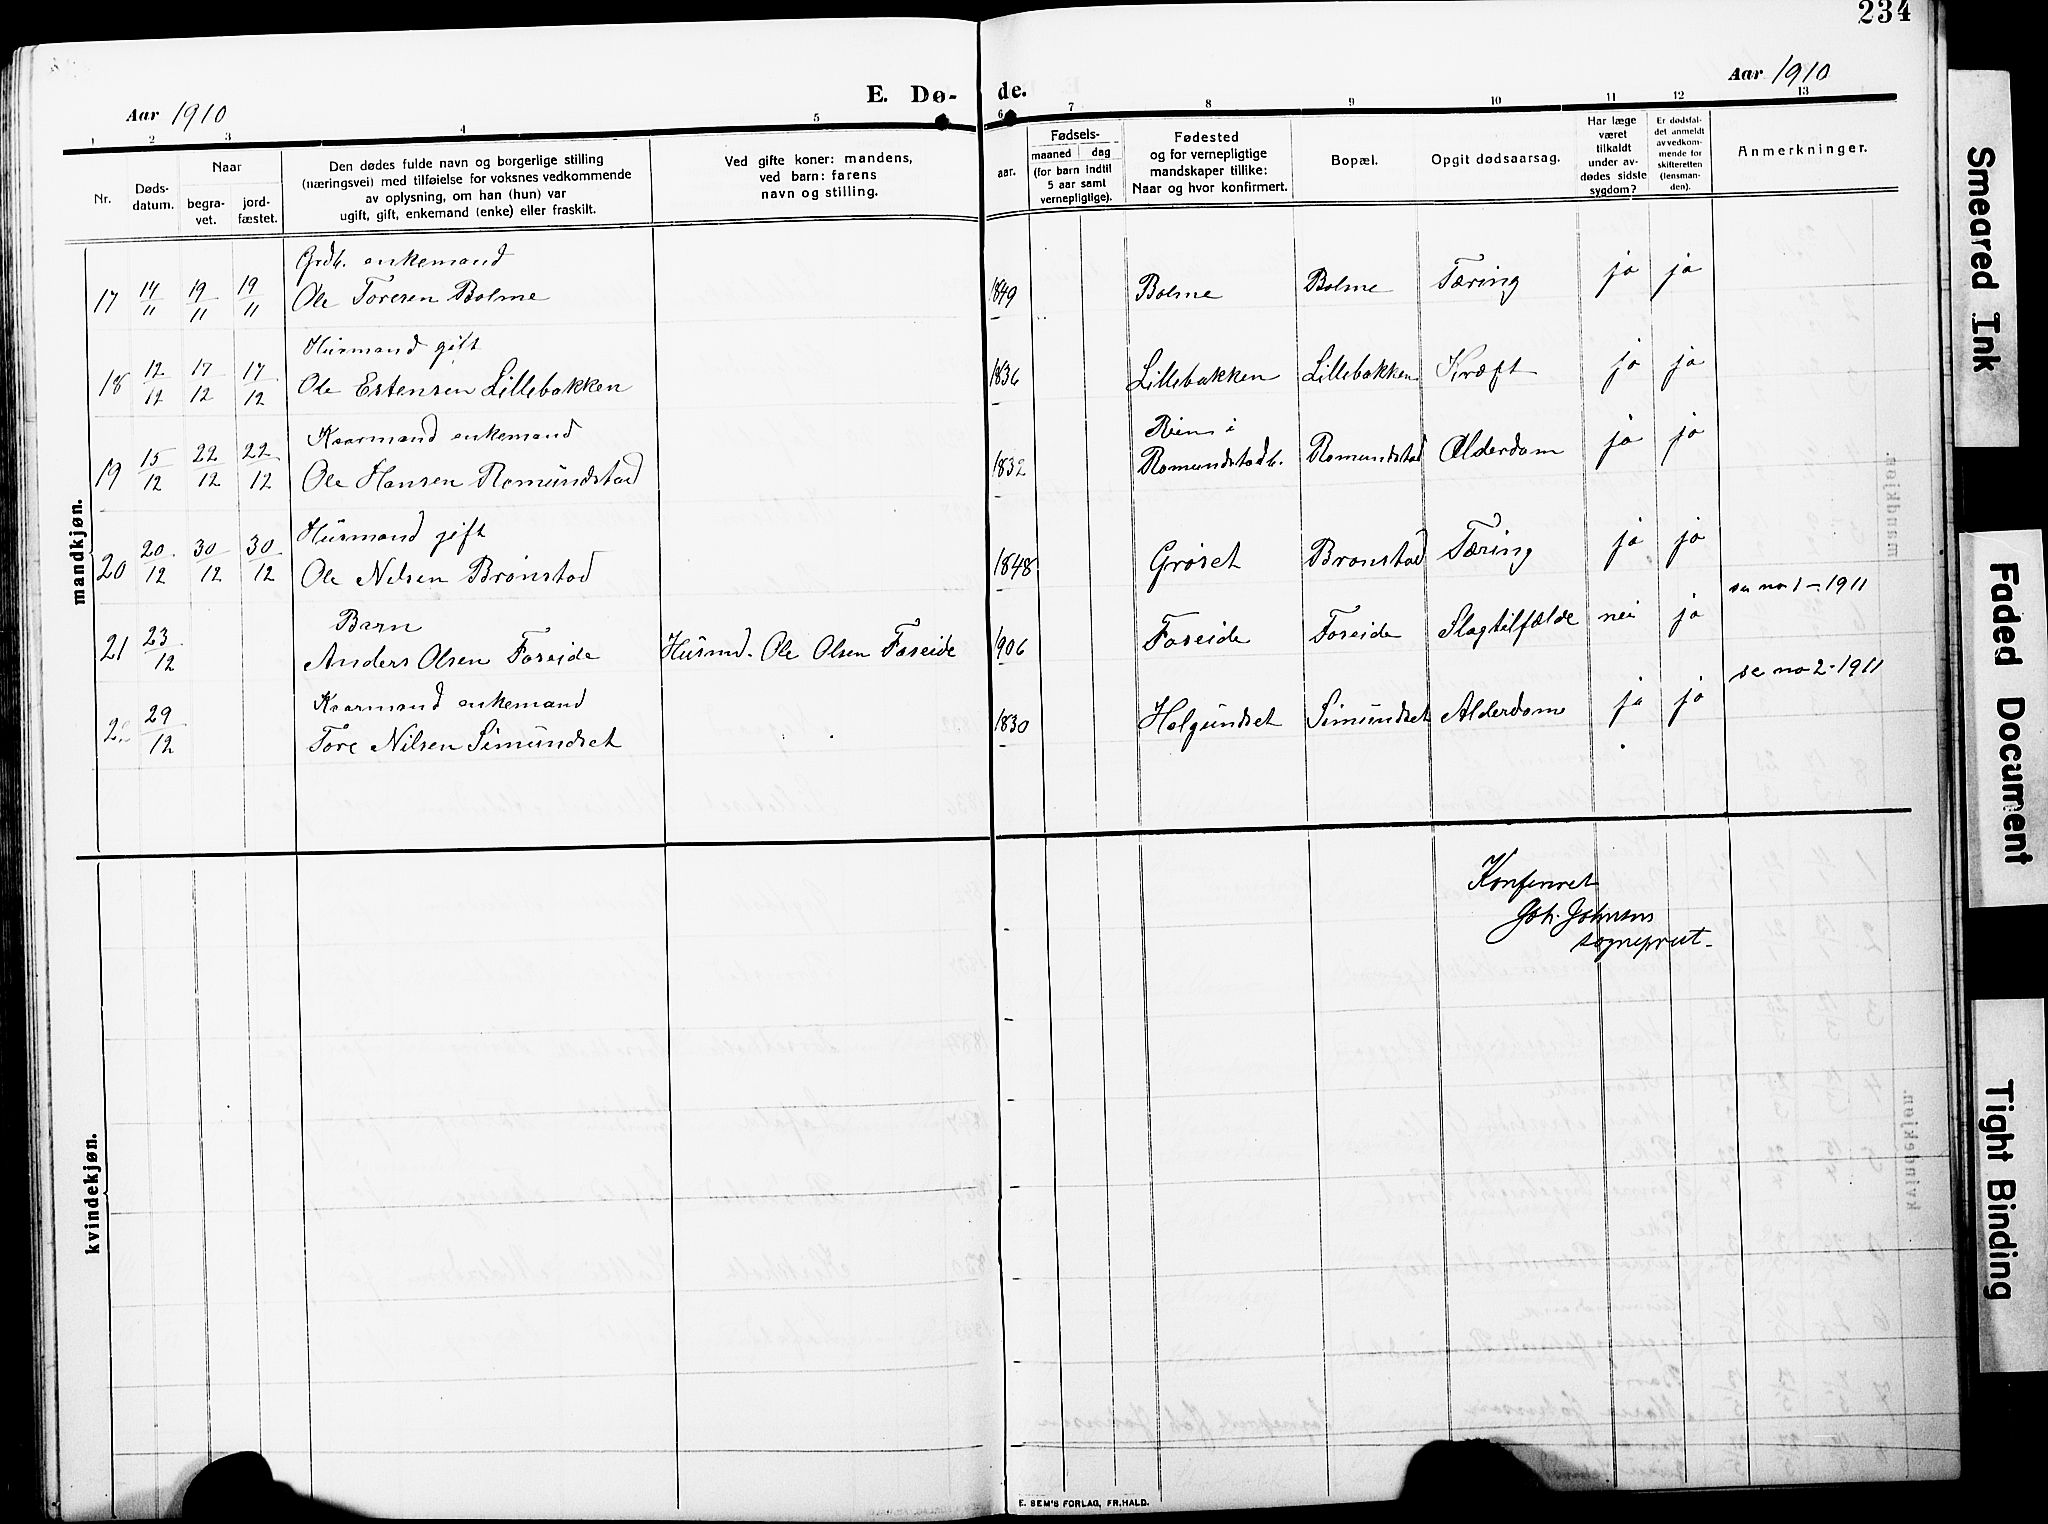 234
Aar 1910
E. Dø-
de.
Aar 1910
1 2 3 4 5 6 7 8 9 10 11 12 13
Nr.
Døds-
datum.
Naar
begra-
vet.
jord-
fæstet.
Den dødes fulde navn og borgerlige stilling
(næringsvei) med tilføielse for voksnes vedkommende
av oplysning, om han (hun) var
ugift, gift, enkemand (enke) eller fraskilt.
Ved gifte koner: mandens,
ved barn: farens
navn og stilling.
Fødsels-
aar.
maaned dag
(for barn indtil
5 aar samt
vernepligtige).
Fødested
og for vernepligtige
mandskaper tillike:
Naar og hvor konfirmert.
Bopæl.
Opgit dødsaarsag.
Har læge
været
tilkaldt
under av-
dødes sidste
sygdom?
Er dødsfal-
det anmeldt
av vedkom-
mende for
skifteretten
(lensman-
den).
Anmerkninger.
mandkjøn.
Grdb. enkemand
17 14/11 19/11 19/11 Ole Toresen Bolme 1849 Bolme Bolme Tæring ja ja
Husmand gift
18 12/12 17/12 17/12 Ole Estensen Lillebakken 1836 Lillebakken Lillebakken Kræft ja ja
Kaarmand enkemand
19 15/12 22/12 22/12 Ole Hansen Romundstad 1832 Romundstadb. Romundstad Alderdom ja ja
Husmand gift
20 20/12 30/12 30/12 Ole Nilsen Brønstad 1848 Grøset Brønstad Tæring ja ja
Barn se no 1 - 1911
21 23/12 Anders Olsen Foseide Husmd. Ole Olsen Foseide 1906 Foseide Foseide Slagtilfælde nei ja
Kaarmand enkemand se no 2 - 1911
22 29/12 Tore Nilsen Simundset 1830 Halgundset Simundset Alderdom ja ja
kvindekjøn.
Konfereret
Joh. Johnsen
sogneprest
E. SEM'S FORLAG, FR.HALD.
Smeared Ink
Faded Document
Tight Binding